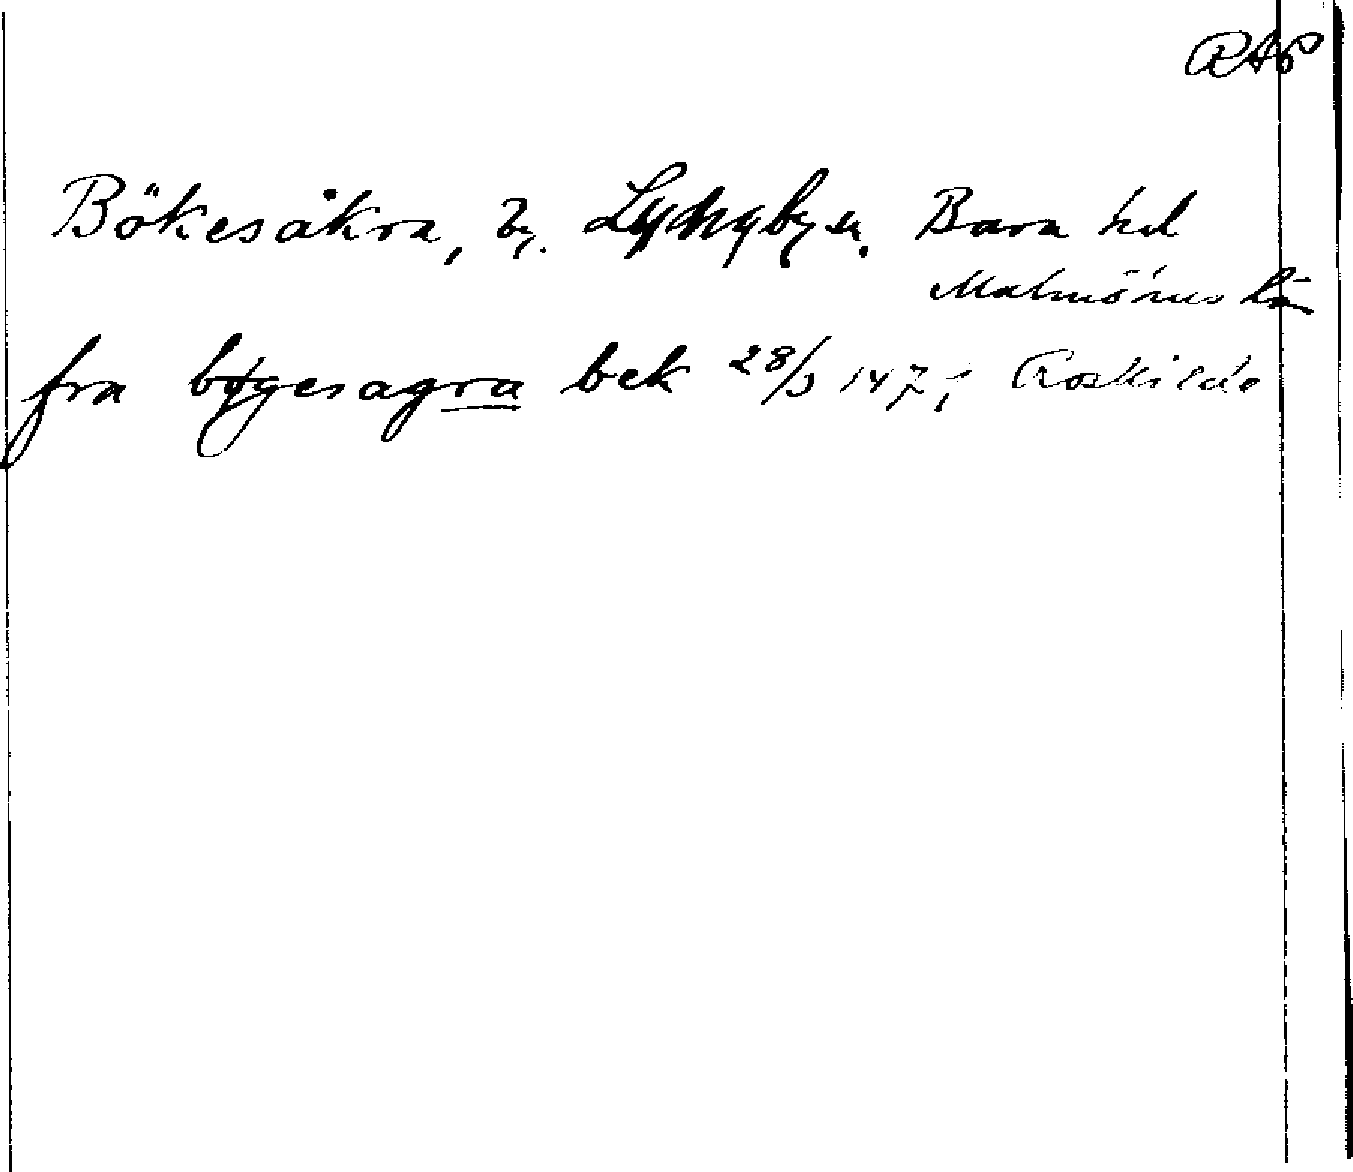 RAP
Bökesåkra, by. Lyngby sn. Bara hd
Malmöhus län
fra bøgesagra bek 28/3 147, Roskilde